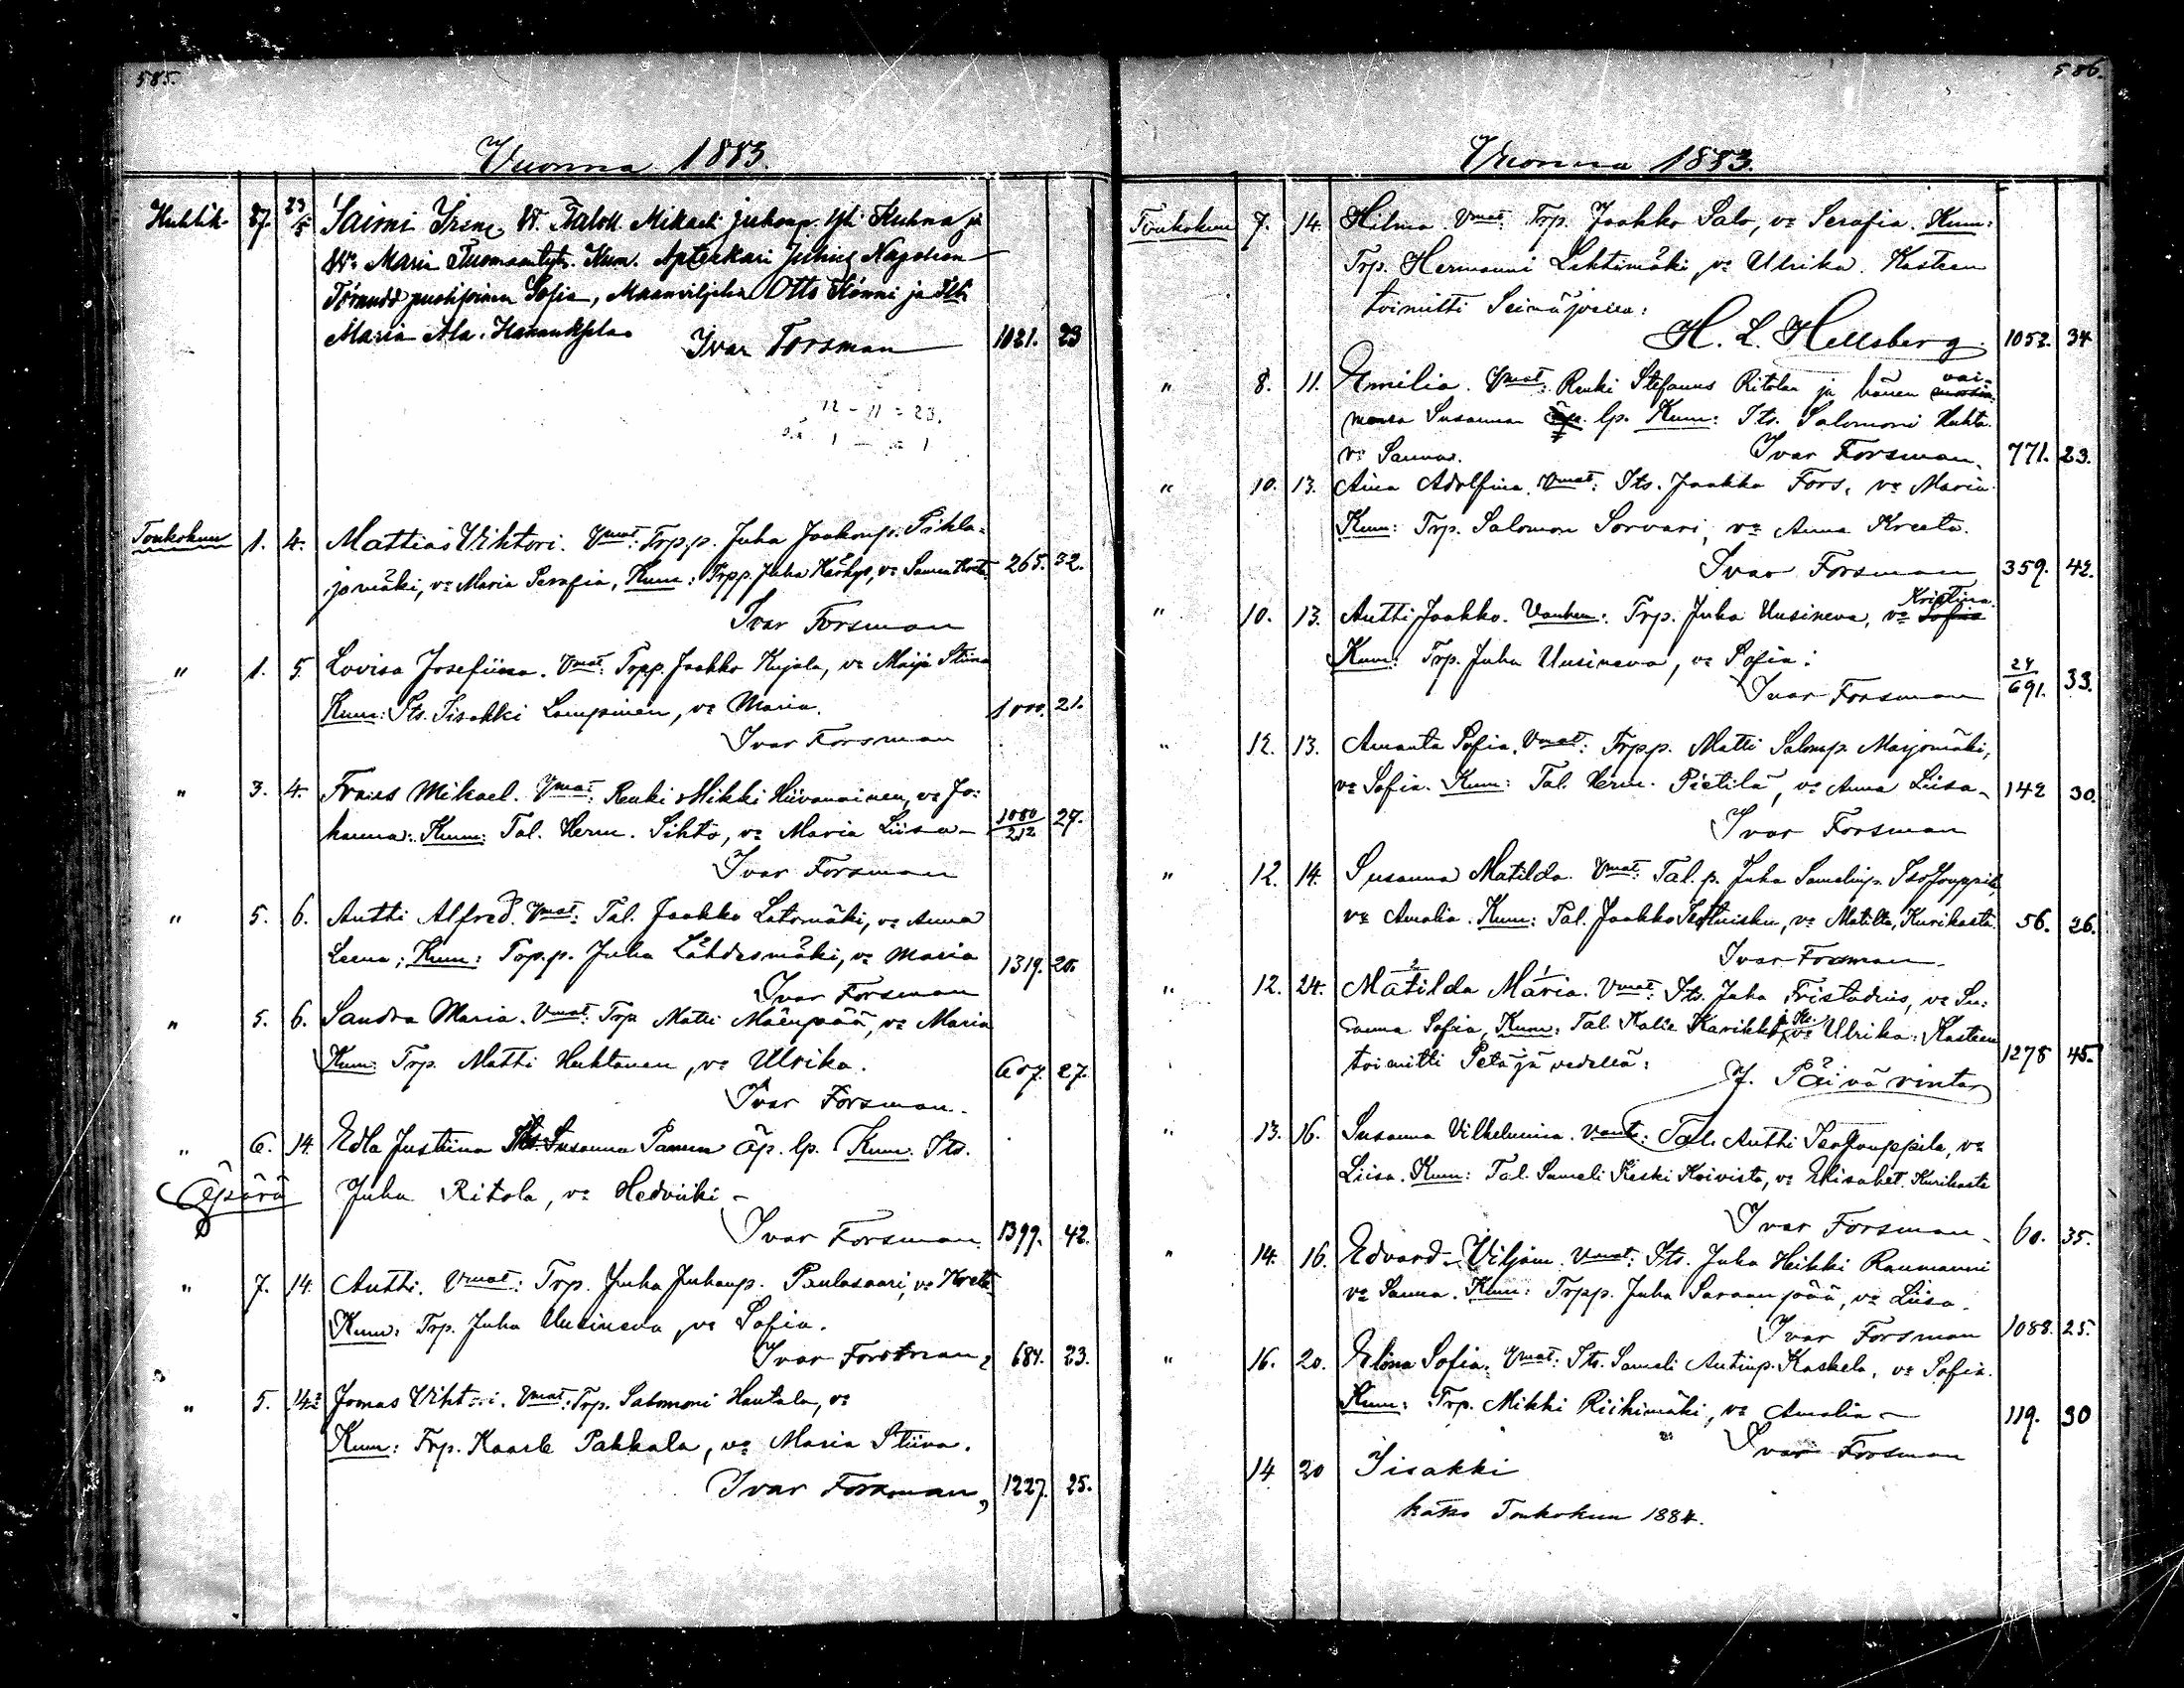 585.
Vuonna 1883.
Huhtik. 27. 23/5 Saimi Irene. V. Taloll. Mikaeli Juhonp. Yli Kuhna ja
Vo Maria Tuomaantyt. Kum. Apteekari Julius Napoleon
puolisoineen Sofia, Maanviljeliä Otto Könni ja
Maria Ala-Hanuksela
Ivar Forsman 1021. 23
12 - 11 = 23.
1 — = 1
Toukokuu 1. 4. Mattias Vihtori. Vmat: Trp.p. Juha Jaakonp. Pihla-
jamäki, vo Maria Serafia, Kum: Trpp. Juha Kärkys, vo Sanna Kreeta 265. 32.
Ivar Forsman
" 1. 5. Lovisa Josefiina. Vmat: Trpp. Jaakko Kujala, vo Maija Stiina
Kum: Its. Iisakki Lampinen, vo Maria. 1000. 21.
Ivar Forsman
" 3. 4. Frans Mikael. Vmat: Renki Mikki Hiivanainen, vo Jo-
hanna: Kum: Tal. Herm. Sihto, vo Maria Liisa – 1080/212 27.
Ivar Forsman
" 5. 6. Antti Alfred. Vmat: Tal. Jaakko Latomäki, vo Anna
Leena; Kum: Trp.p. Juha Lähdesmäki, vo Maria 1319. 20.
Ivar Forsman
" 5. 6. Sandra Maria. Vmat: Trp Matti Mäenpää, vo Maria
Kum: Trp. Matti Huhtanen, vo Ulrika. 607. 27.
Ivar Forsman.
" 6. 14. Edla Justiina Susanna äp. lp. Kum. Its.
Äpärä Juha Ritola, vo Hedviiki –
Ivar Forsman. 1399. 42.
" 7. 14. Antti. Vmat: Trp. Juha Juhanp. Paulasaari, vo Kreeta
Kum: Trp. Juha Uusineva, vo Sofia.
Ivar Forsman, 684. 23.
" 5. 14 Jomas Vihtori. Vmat: Trp. Salomoni Hautala, vo
Kum: Trp. Kaarle Pakkala, vo Maria Stiina.
Ivar Forsman, 1227. 25.
586.
Vuonna 1883.
Toukokuu 7. 14. Hilma. Vmat: Trp. Jaakko Salo, vo Serafia. Kum:
Trp. Hermanni Lehtimäki, vo Ulrika. Kasteen
toimitti Seinäjoella:
H. L. Hellsberg. 1052. 34
" 8. 11. Emilia. Vmat: Renki Stefanus Ritola ja hänen vai-
monsa Susanna lp. Kum: Its. Salomoni Huhta
vo Sanna. Ivar Forsman. 771. 23.
" 10. 13. Aina Adolfina. Vmat: Its. Jaakko Fors, vo Maria.
Kum: Trp. Salomon Sorvari, vo Anna Kreeta.
Ivar Forsman 359. 42.
" 10. 13. Antti Jaakko. Vanhem: Trp. Juha Uusineva, vo Sofia Kristiina.
Kum: Trp. Juha Uusineva, vo Sofia:
Ivar Forsman 24/691. 33.
" 12. 13. Amanta Sofia. Vmat: Trpp. Matti Salomp. Marjomäki,
vo Sofia. Kum: Tal. Herm. Pietilä, vo Anna Liisa – 142 30.
Ivar Forsman
" 12. 14. Susanna Matilda. Vmat: Tal. p. Juha Samelinp. IsoJouppila
vo Amalia. Kum: Tal. Jaakko vo Matilda, Kurikasta. 56. 26.
Ivar Forsman.
" 12. 24. Matilda Maria. Vmat: Its. Juha Tristadius, vo Su-
sanna Sofia, Kum: Tal. Kalle Karikko, vo Ulrika: Kasteen
toimitti Petäjävedellä: 1278 45.
J. Päivärinta
" 13. 16. Susanna Vilhelmina. Vanh: Tal. Antti IsoJouppila, vo
Liisa. Kum: Tal. Sameli Keski Koivisto, vo Elisabet. Kurikasta
Ivar Forsman. 60. 35.
" 14. 16. Edvard Viljam. Vmat: Its. Juha Heikki Raumanni
vo Sanna. Kum: Trpp. Juha Saraanpää, vo Liisa.
Ivar Forsman 1088. 25.
" 16. 20. Elina Sofia. Vmat: Its. Sameli Antinp. Kaskela, vo Sofia.
Kum: Trp. Mikki Riihimäki, vo Amalia – 119. 30
Ivar Forsman
14 20 Iisakki
katso Toukokuu 1884.